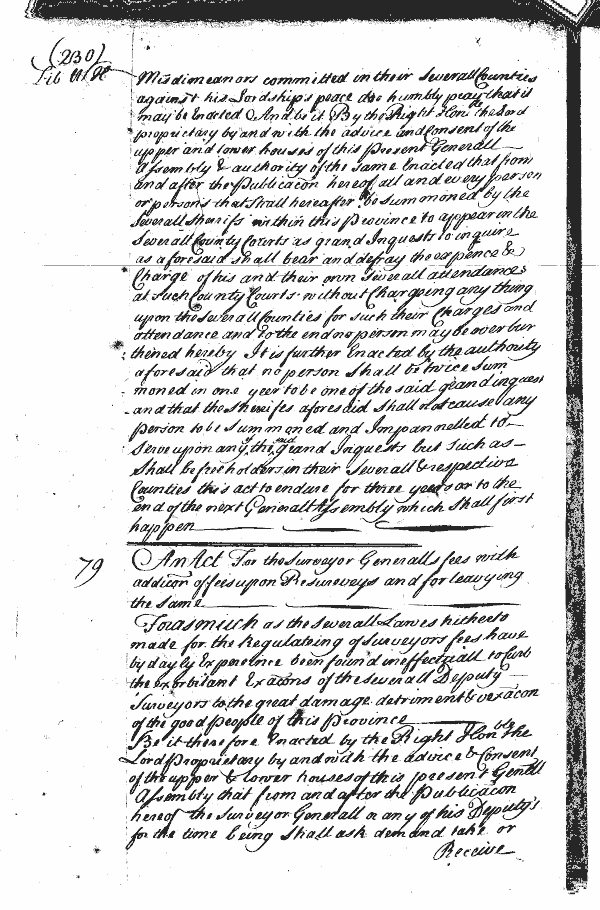 (230)
Lib
Misdimeanors committed in their Severall Counties
against his Lordship's peace doe humbly pray that it
may be Enacted And be it By the Right Honble the Lord
proprietary by and with the advice and Consent of the
upper and lower houses of this Present Generall
Assembly & authority of the same Enacted that from
and after the Publicacon hereof all and every person
or persons that shall hereafter be summoned by the
Severall Sherifs within this Province to appear in the
Severall County Courts as grand Inquests to inquire
as aforesaid shall bear and defray the expence &
Charge of his and their own Severall attendances
at such County Courts without Chargeing any thing
upon the Severall Counties for such their Charges and
attendance and to the end no person may be over bur
thened hereby It is further Enacted by the authority
aforesaid that no person Shall be twice Sum
moned in one year to be one of the said grand inquest
and that the Sherifes aforesaid Shall not cause any
person to be Summoned and Impannelled to
Serve upon any the said grand Inquests but such as
Shall be freeholders in their Severall & respective
Counties this act to endure for three years or to the
end of the next Generall Assembly which Shall first
happen
79
An Act For the Surveyor Generalls fees with
addicon of feis upon Resurveys and for leavying
the same
Forasmuch as the Severall Lawes hitherto
made for the Regulateing of Surveyors fees have
by dayly Experience been found ineffectuall to Curb
the exorbitant Exacons of the severall Deputy
Surveyors to the great damage detriment & vexacon
of the good people of this Province
Be it therefore Enacted by the Right Honble the
Lord Proprietary by and with the advice & Consent
of the upper & lower houses of this present Genall
Assembly that from and after the Publicacon
hereof the Surveyor Generall or any of his Deputy's
for the time being Shall ask demand take or
Receive